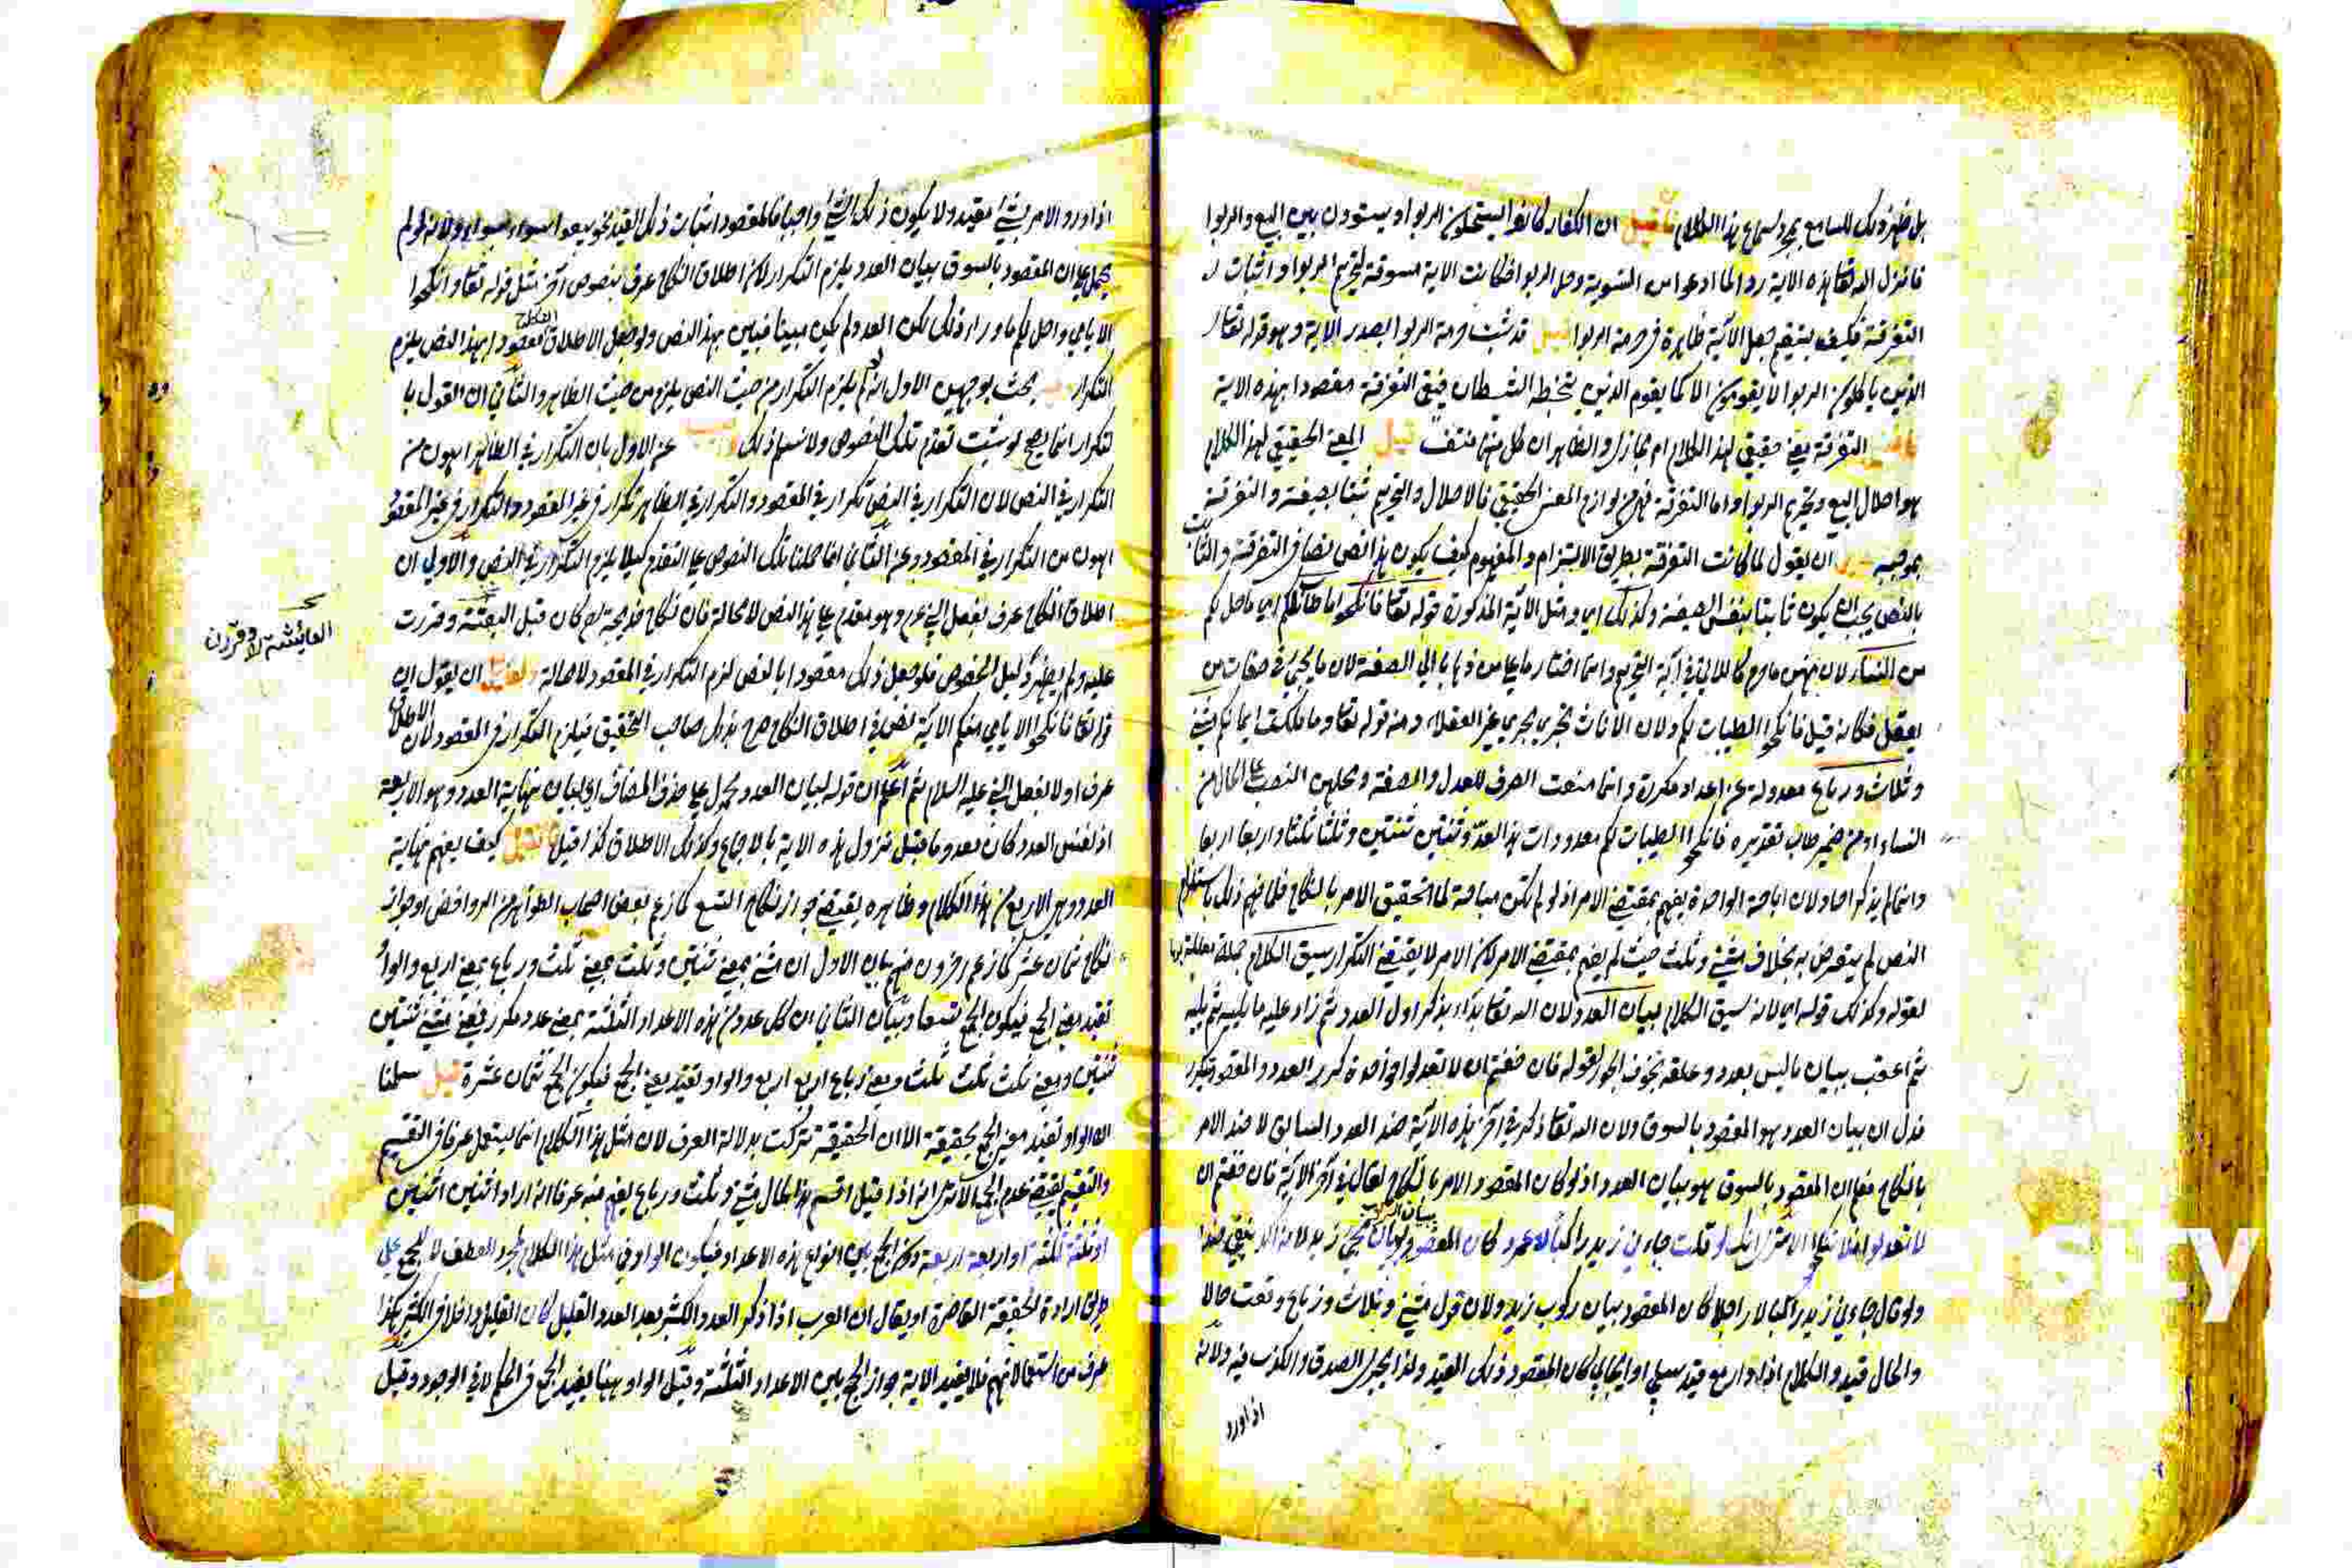 بل ظهر ذلك للسامع بمجرد سماع هذا الكلام فان قيل ان الكفار كانوا يستحلون الربوا ويستوون بين البيع والربوا
فانزل الله تعا هذه الاية ردا لما ادعوا من التسوية وحل الربوا فكانت الاية مسوقة لتحريم الربوا واثبات
التفرقة فكيف يستقيم جعل الآية ظاهرة في حرمة الربوا قيل قد ثبت حرمة الربوا بصدر الاية وهو قوله تعا
الذين ياكلون الربوا لا يقومون الا كما يقوم الذي يتخبطه الشيطان فبقي التفرقة مقصودا بهذه الاية
فان قيل التفرقة معنى حقيقي لهذا الكلام ام مجازي والظاهر ان كل منهما منتف قيل المعنى الحقيقي لهذا الكلام
هو احلال البيع وتحريم الربوا واما التفرقة فهي من لوازم المعنى الحقيقي فالاحلال والتحريم ثبتا بصيغته والتفرقة
بموجبه ان يقول لما كانت التفرقة بطريق الالتزام والمفهوم كيف يكون هذا النص نصا في التفرقة والثابت
بالنص يجب ان يكون ثابتا بنفس الصيغة وكذلك اي ومثل الآية المذكورة قوله تعا فانكحوا ما طاب لكم اي ما حل لكم
من النساء لان منهن ما حرم كاللاتي في آية التحريم وانما اختار ما على من ذهابا الى الصفة لان ما يجيء في صفات من
يعقل فكانه قيل فانكحوا الطيبات لكم ولان الاناث تجري مجرى غير العقلاء ومنه قوله تعا وما ملكت ايمانكم مثنى
وثلاث ورباع معدولة عن اعداد مكررة وانما منعت الصرف للعدل والصفة ومحلهن النصب على الحال من
النساء او من ضمير طاب تقديره فانكحوا الطيبات لكم معدودات هذا العدد ثنتين ثنتين وثلثا ثلثا واربعا اربعا
وانما لم يذكر احاد لان اباحة الواحدة يفهم بمقتضى الامر اذ لو لم تكن مباحة لما تحقيق الامر بالنكاح فلما فهم ذلك باستلزام
النص لم يتعرض به بخلاف مثنى وثلث حيث لم يفهم بمقتضى الامر لان الامر لا يقتضي التكرار سيق الكلام جملة معللة بها
لقوله وكذلك قوله اي لانه سيق الكلام لبيان العدد لان الله تعا بداء بذكر اول العدد ثم زاد عليه ما يليه ثم يليه
ثم اعقب ببيان ما ليس بعدد وعلقه بخوف الجور لقوله فان خفتم ان لا تعدلوا فواحدة كرر العدد والمقصود
فدل ان بيان العدد هو المقصود بالسوق ولان الله تعا ذكر في آخر هذه الآية ضد العدد السابق لا ضد الامر
بالنكاح فعلم ان المقصود بالسوق هو بيان العدد اذ لو كان المقصود الامر بالنكاح لقال في آخر الآية فان خفتم ان
لا تعدلوا فلا تنكحوا الا ترى انك لو قلت جاءني زيد راكبا لا عمرو كان المقصود بيان مجيء زيد
ولو قال جاءني زيد راكبا لا راجلا كان المقصود بيان ركوب زيد ولان قول مثنى وثلاث ورباع وقعت حالا
والحال قيد والكلام اذا دار مع قيد سلبي او ايجابي كان المقصود ذلك القيد ولذا يجري الصدق والكذب فيه ولانه
اذا ورد
اذا ورد الامر بشيء مقيد ولا يكون ذلك الشيء واجبا فالمقصود اثبات ذلك القيد نحو بيعوا سواء بسواء ولانه لو لم
يحمل على ان المقصود بالسوق بيان العدد يلزم التكرار لان اطلاق النكاح عرف بنصوص آخر مثل قوله تعا وانكحوا
الايامى واحل لكم ما وراء ذلكم لكن العدد لم يكن مبينا فبين بهذا النص ولو جعل الاطلاق مقصودا بهذا النص يلزم
النكاح
التكرار بحث بوجهين الاول انه لو لم يلزم التكرار من حيث النص يلزم من حيث الظاهر والثاني ان القول با
لتكرار انما يصح لو ثبت تقدم تلك النصوص ولا نسلم ذلك عن الاول بان التكرار في الظاهر اهون من
التكرار في النص لان التكرار في النص تكرار في المقصود والتكرار في الظاهر تكرار في غير المقصود والتكرار في غير المقصود
اهون من التكرار في المقصود وعن الثاني انما حملنا تلك النصوص على التقدم كيلا يلزم التكرار في النص والاولى ان
اطلاق النكاح عرف بفعل النبي عم وهو مقدم على هذا النص لا محالة فان نكاح خديجة رض كان قبل البعثة وقررت
عليه ولم يظهر دليل الخصوص فلو جعل ذلك مقصودا بالنص لزم التكرار في المقصود لا محالة ولقائل ان يقول ان
قوله تعا فانكحوا الايامى منكم الآية نص في اطلاق النكاح صرح بذلك صاحب التحقيق فيلزم التكرار في المقصود لان الاطلاق
عرف اولا بفعل النبي عليه السلام ثم اعلم ان قوله لبيان العدد محمول على حذف المضاف اي لبيان نهاية العدد وهو الاربعة
اذ نفس العدد كان معدوما قبل نزول هذه الاية بالاجماع وكذلك الاطلاق كذا قيل فان قيل كيف يفهم نهاية
العدد وهي الاربع من هذا الكلام وظاهره يقتضي جواز نكاح التسع كما زعم بعض اصحاب الظواهر من الروافض او جواز
نكاح ثمان عشر كما زعم آخرون منهم بيان الاول ان مثنى بمعنى ثنتين وثلث بمعنى ثلث ورباع بمعنى اربع والواو
تفيد معنى الجمع فيكون الجمع تسعا وبيان الثاني ان كل عدد من هذه الاعداد الثلثة بمعنى عدد مكرر فمعنى مثنى ثنتين
ثنتين ومعنى ثلث ثلث ثلث ومعنى رباع اربع اربع والواو تفيد معنى الجمع فيكون الجمع ثمان عشرة قيل سلمنا
ان الواو تفيد معنى الجمع بحقيقة الا ان الحقيقة تركت بدلالة العرف لان مثل هذا الكلام انما يستعمل عرفا في التقسيم
والتقسيم يقتضي عدم الجمع الا ترى انه اذا قيل اقسم هذا المال مثنى وثلث ورباع يفهم منه عرفا انه اراد اثنين اثنين
او ثلثة ثلثة او اربعة اربعة ولا الجمع بين انواع هذه الاعداد فيكون الواو في مثل هذا الكلام لمجرد العطف لا للجمع على
طريق ارادة الحقيقة القاصرة او يقال ان العرب اذا ذكر العدد الكثير بعد العدد القليل كان القليل داخلا في الكثير هكذا
عرف من استعمالاتهم فلا يفيد الاية جواز الجمع بين الاعداد الثلثة وقيل الواو ههنا يفيد الجمع في الحكم لا في الوجود وقيل